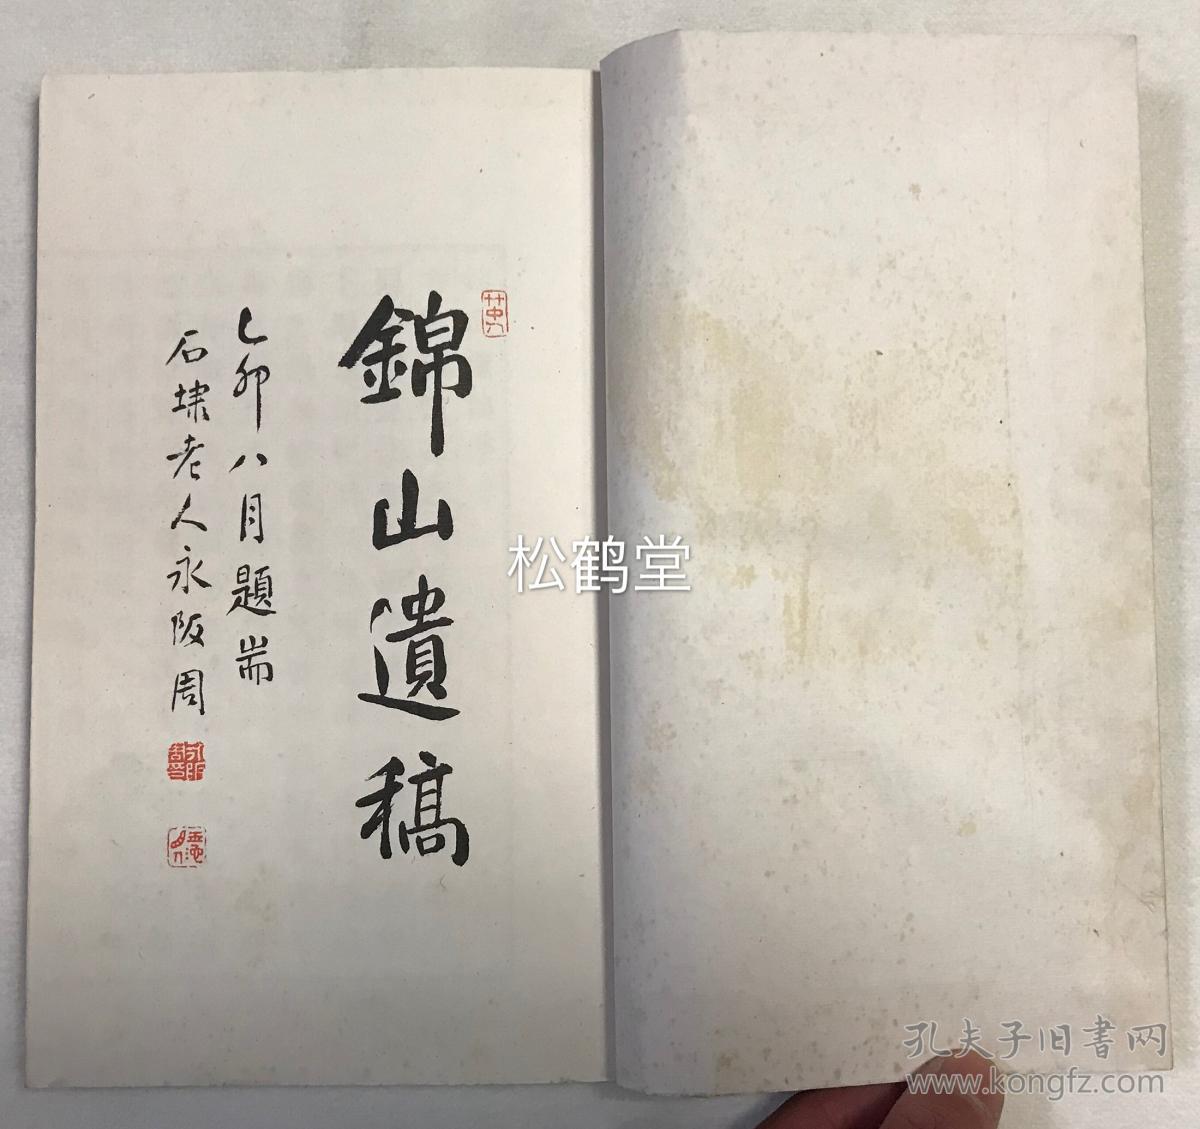 錦山遺稿
乙卯八月題耑
石埭老人永阪周
松鹤堂
孔夫子旧书网
www.kongfz.com